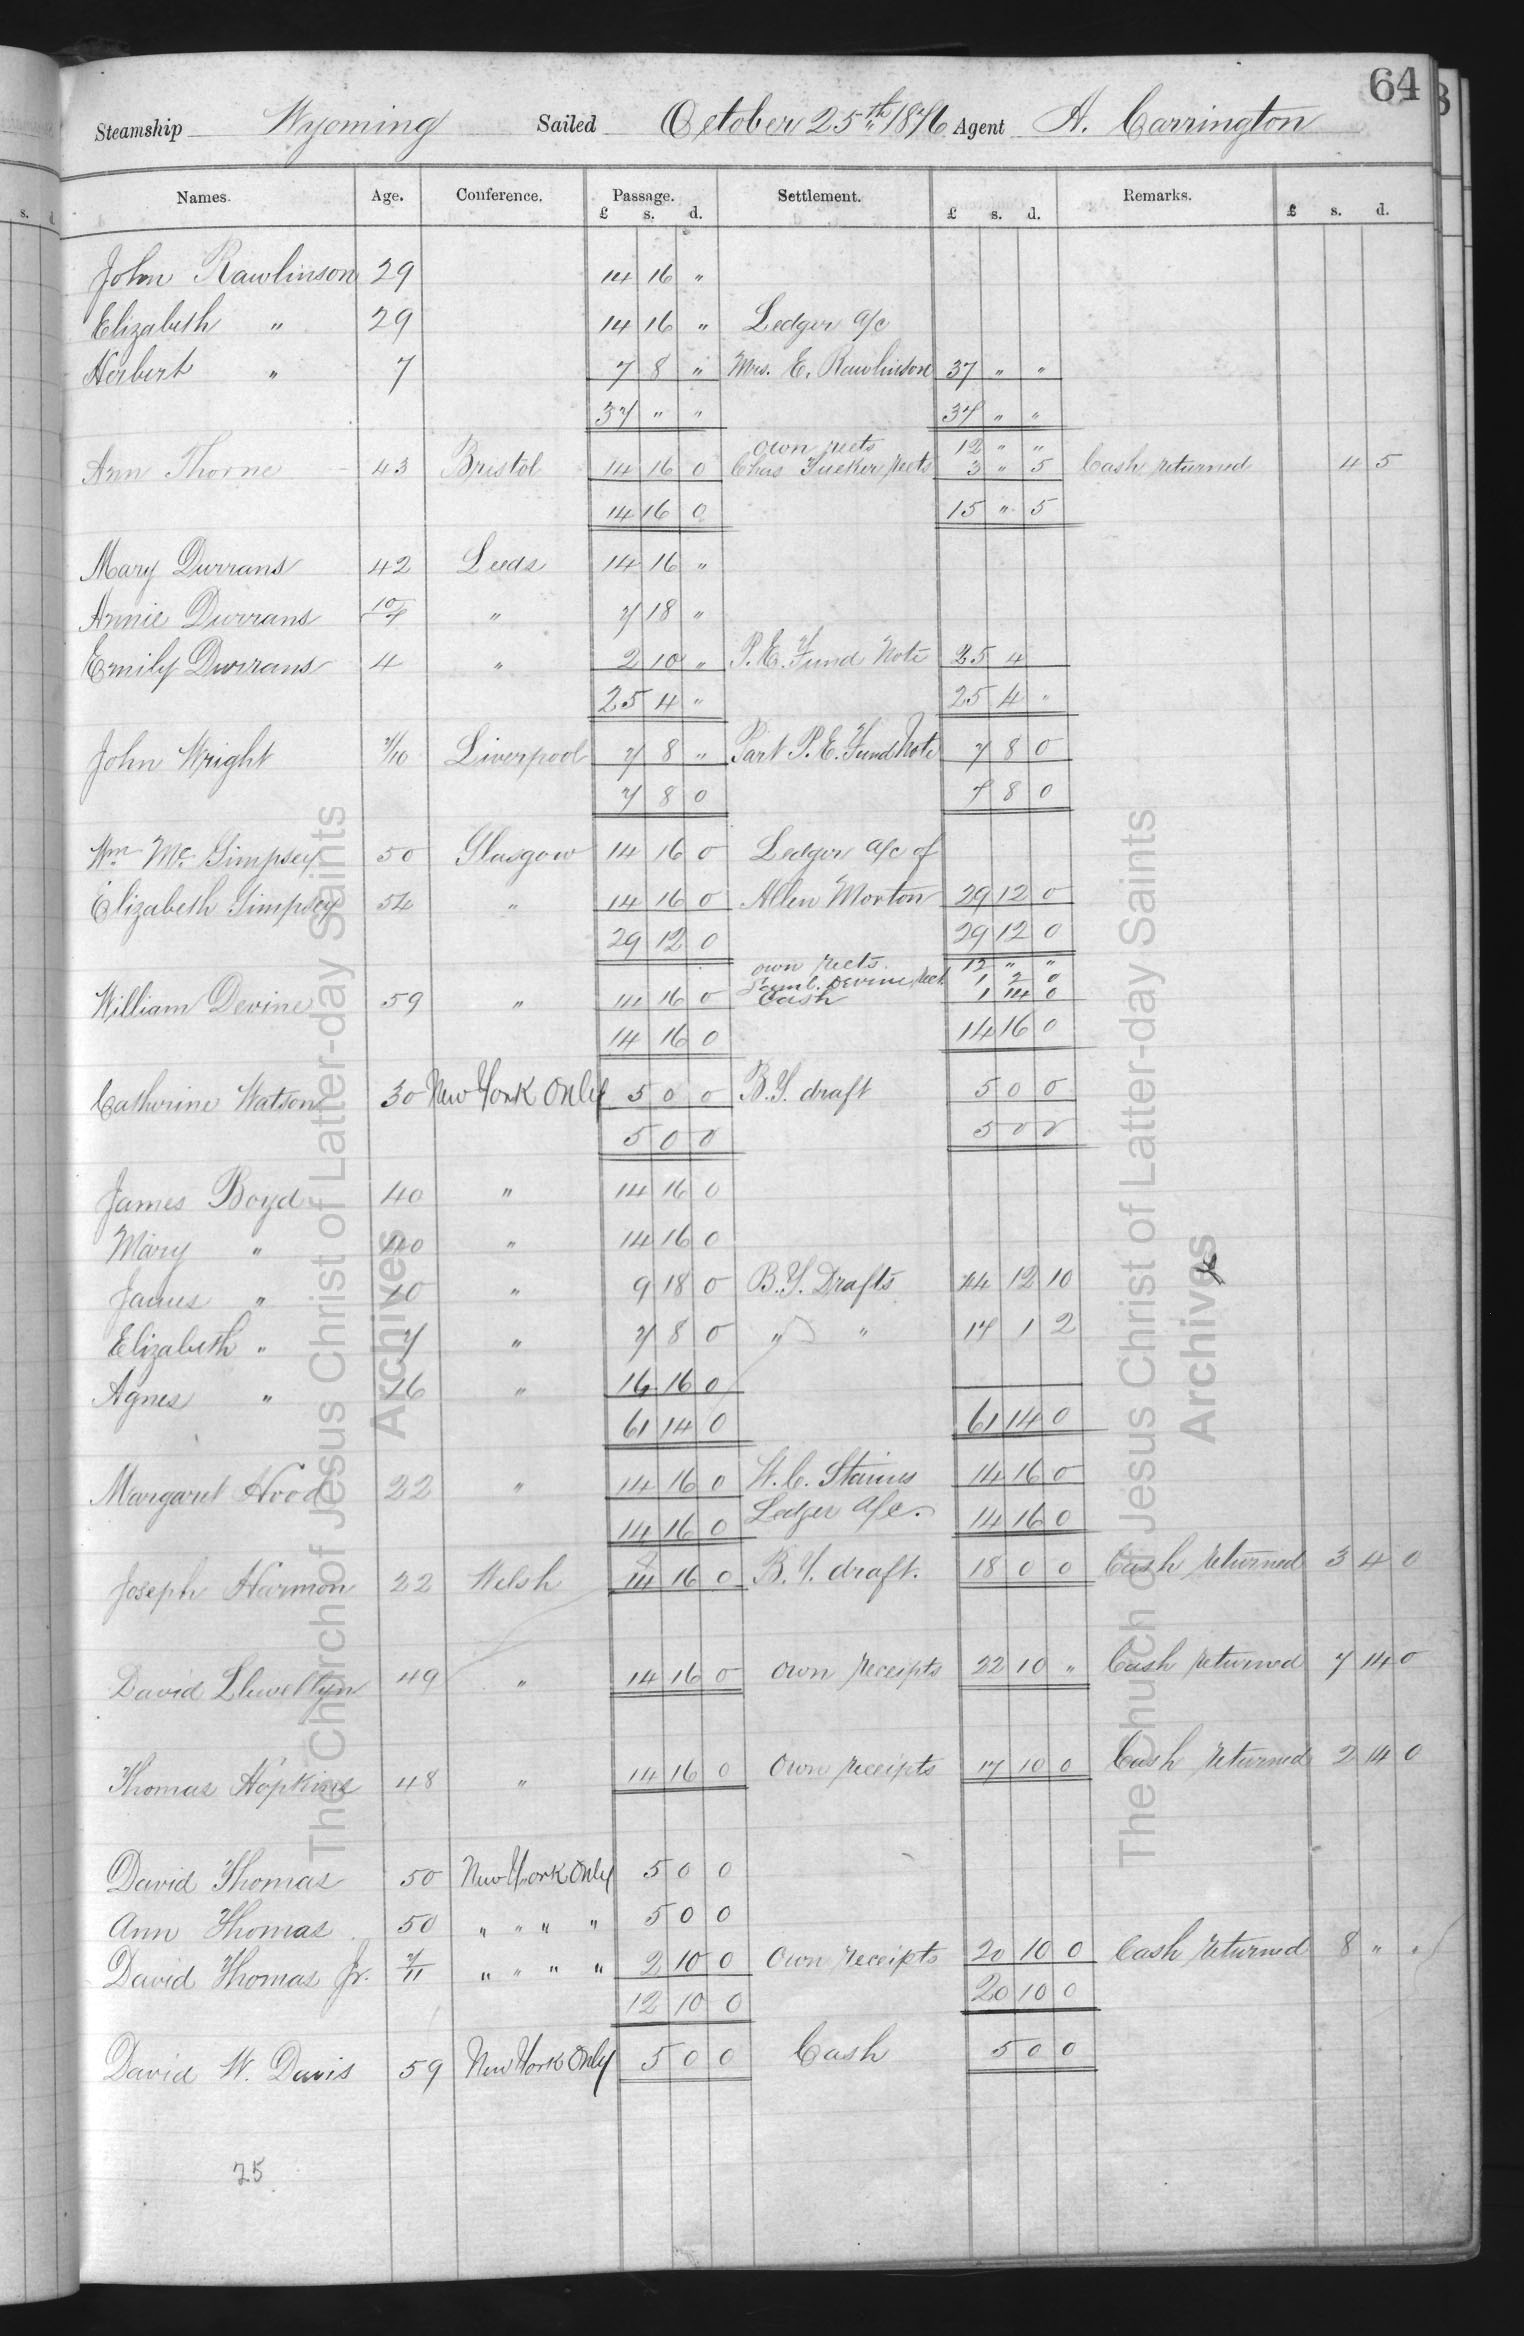 64
Steamship Wyoming Sailed October 25th 1876 Agent A. Carrington
Names. Age. Conference. Passage. Settlement. Remarks.
£ s. d. £ s. d. £ s. d.
John Rawlinson 29 14 16 "
Elizabeth " 29 14 16 " Ledger a/c
Herbert " 7 7 8 " Mrs. E. Rawlinson 37 " "
37 " " 37 " "
own rects 12 " "
Ann Thorne 43 Bristol 14 16 0 Chas Tucker rects 3 " 5 Cash returned 4 5
14 16 0 15 " 5
Mary Durrans 42 Leeds 14 16 "
Annie Durrans " 7 18 "
Emily Durrans 4 " 2 10 " P.E. Fund Note 25 4
25 4 " 25 4 "
John Wright 7/10 Liverpool 7 8 " Part P.E. Fund Note 7 8 0
7 8 0 7 8 0
Wm Mc Gimpsey 50 Glasgow 14 16 0 Ledger a/c of
Elizabeth Gimpsey 54 " 14 16 0 Allen Morton 29 12 0
29 12 0 29 12 0
own rects. 12 " "
Saml. Devine, rect 1 2 0
William Devine 59 " 14 16 0 Cash 1 14 0
14 16 0 14 16 0
Catherine Watson 30 New York Only 5 0 0 B.Y. draft 5 0 0
5 0 0 5 0 0
James Boyd 40 " 14 16 0
Mary " 40 " 14 16 0
James " 10 " 9 18 0 B.Y. Drafts 44 12 10
Elizabeth " 7 " 7 8 0 " " 17 1 2
Agnes " 16 " 14 16 0
61 14 0 61 14 0
Margaret Hood 22 " 14 16 0 W.C. Staines 14 16 0
14 16 0 Ledger a/c. 14 16 0
Joseph Harmon 22 Welsh 14 16 0 B.Y. draft. 18 0 0 Cash returned 3 4 0
David Llewellyn 49 " 14 16 0 own receipts 22 10 " Cash returned 7 14 0
Thomas Hopkins 48 " 14 16 0 Own receipts 17 10 0 Cash returned 2 14 0
David Thomas 50 New York Only 5 0 0
Ann Thomas 50 " " " " 5 0 0
David Thomas Jr. 7/11 " " " " 2 10 0 Own receipts 20 10 0 Cash returned 8 " "
12 10 0 20 10 0
David W. Davis 59 New York Only 5 0 0 Cash 5 0 0
25
The Church of Jesus Christ of Latter-day Saints
Archives
The Church of Jesus Christ of Latter-day Saints
Archives